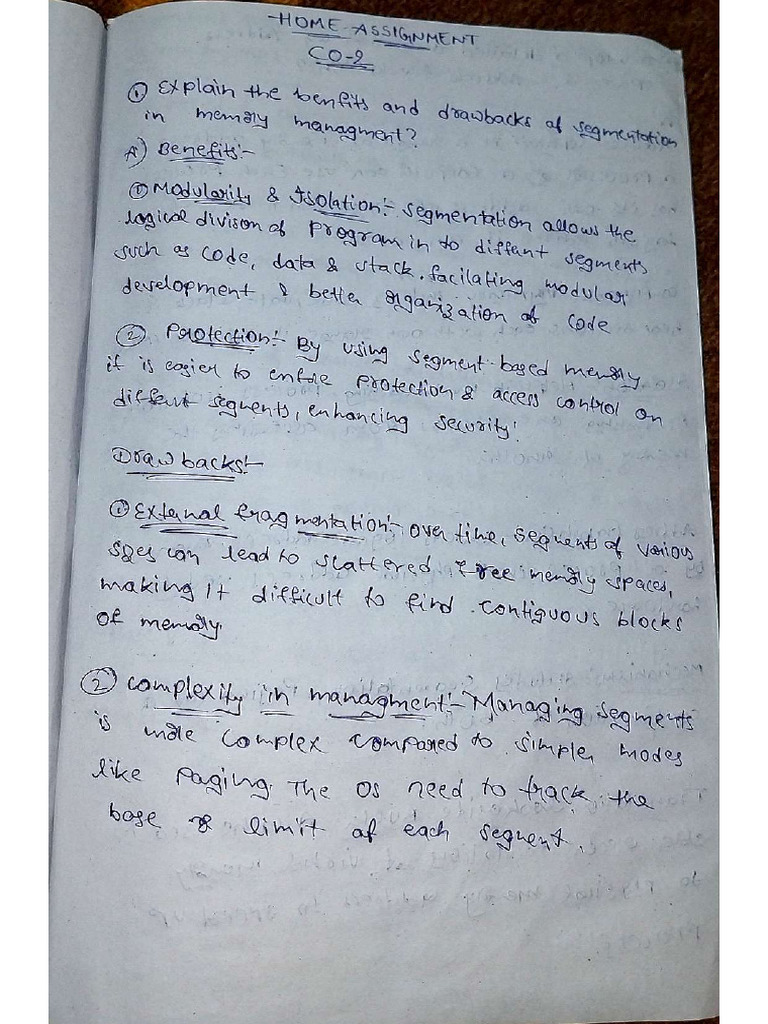 HOME ASSIGNMENT
CO-2
① Explain the benfits and drawbacks of segmentation
in memory managment?
A) Benefits:-
① Modularity & Isolation:- segmentation allows the
logical divison of program in to diffent segments
such as code, data & stack. facilating modular
development & better organization of code
② Protection:- By using segment-based memory
it is easier to enfore protection & access control on
diffent segments, enhancing security.
Drawbacks:-
① External fragmentation:- over time, segments of various
sizes can lead to scattered free memory spaces,
making it difficult to find contiguous blocks
of memory.
② complexity in managment:- Managing segments
is more complex compared to simpler modes
like paging. The OS need to track the
base & limit of each segment.